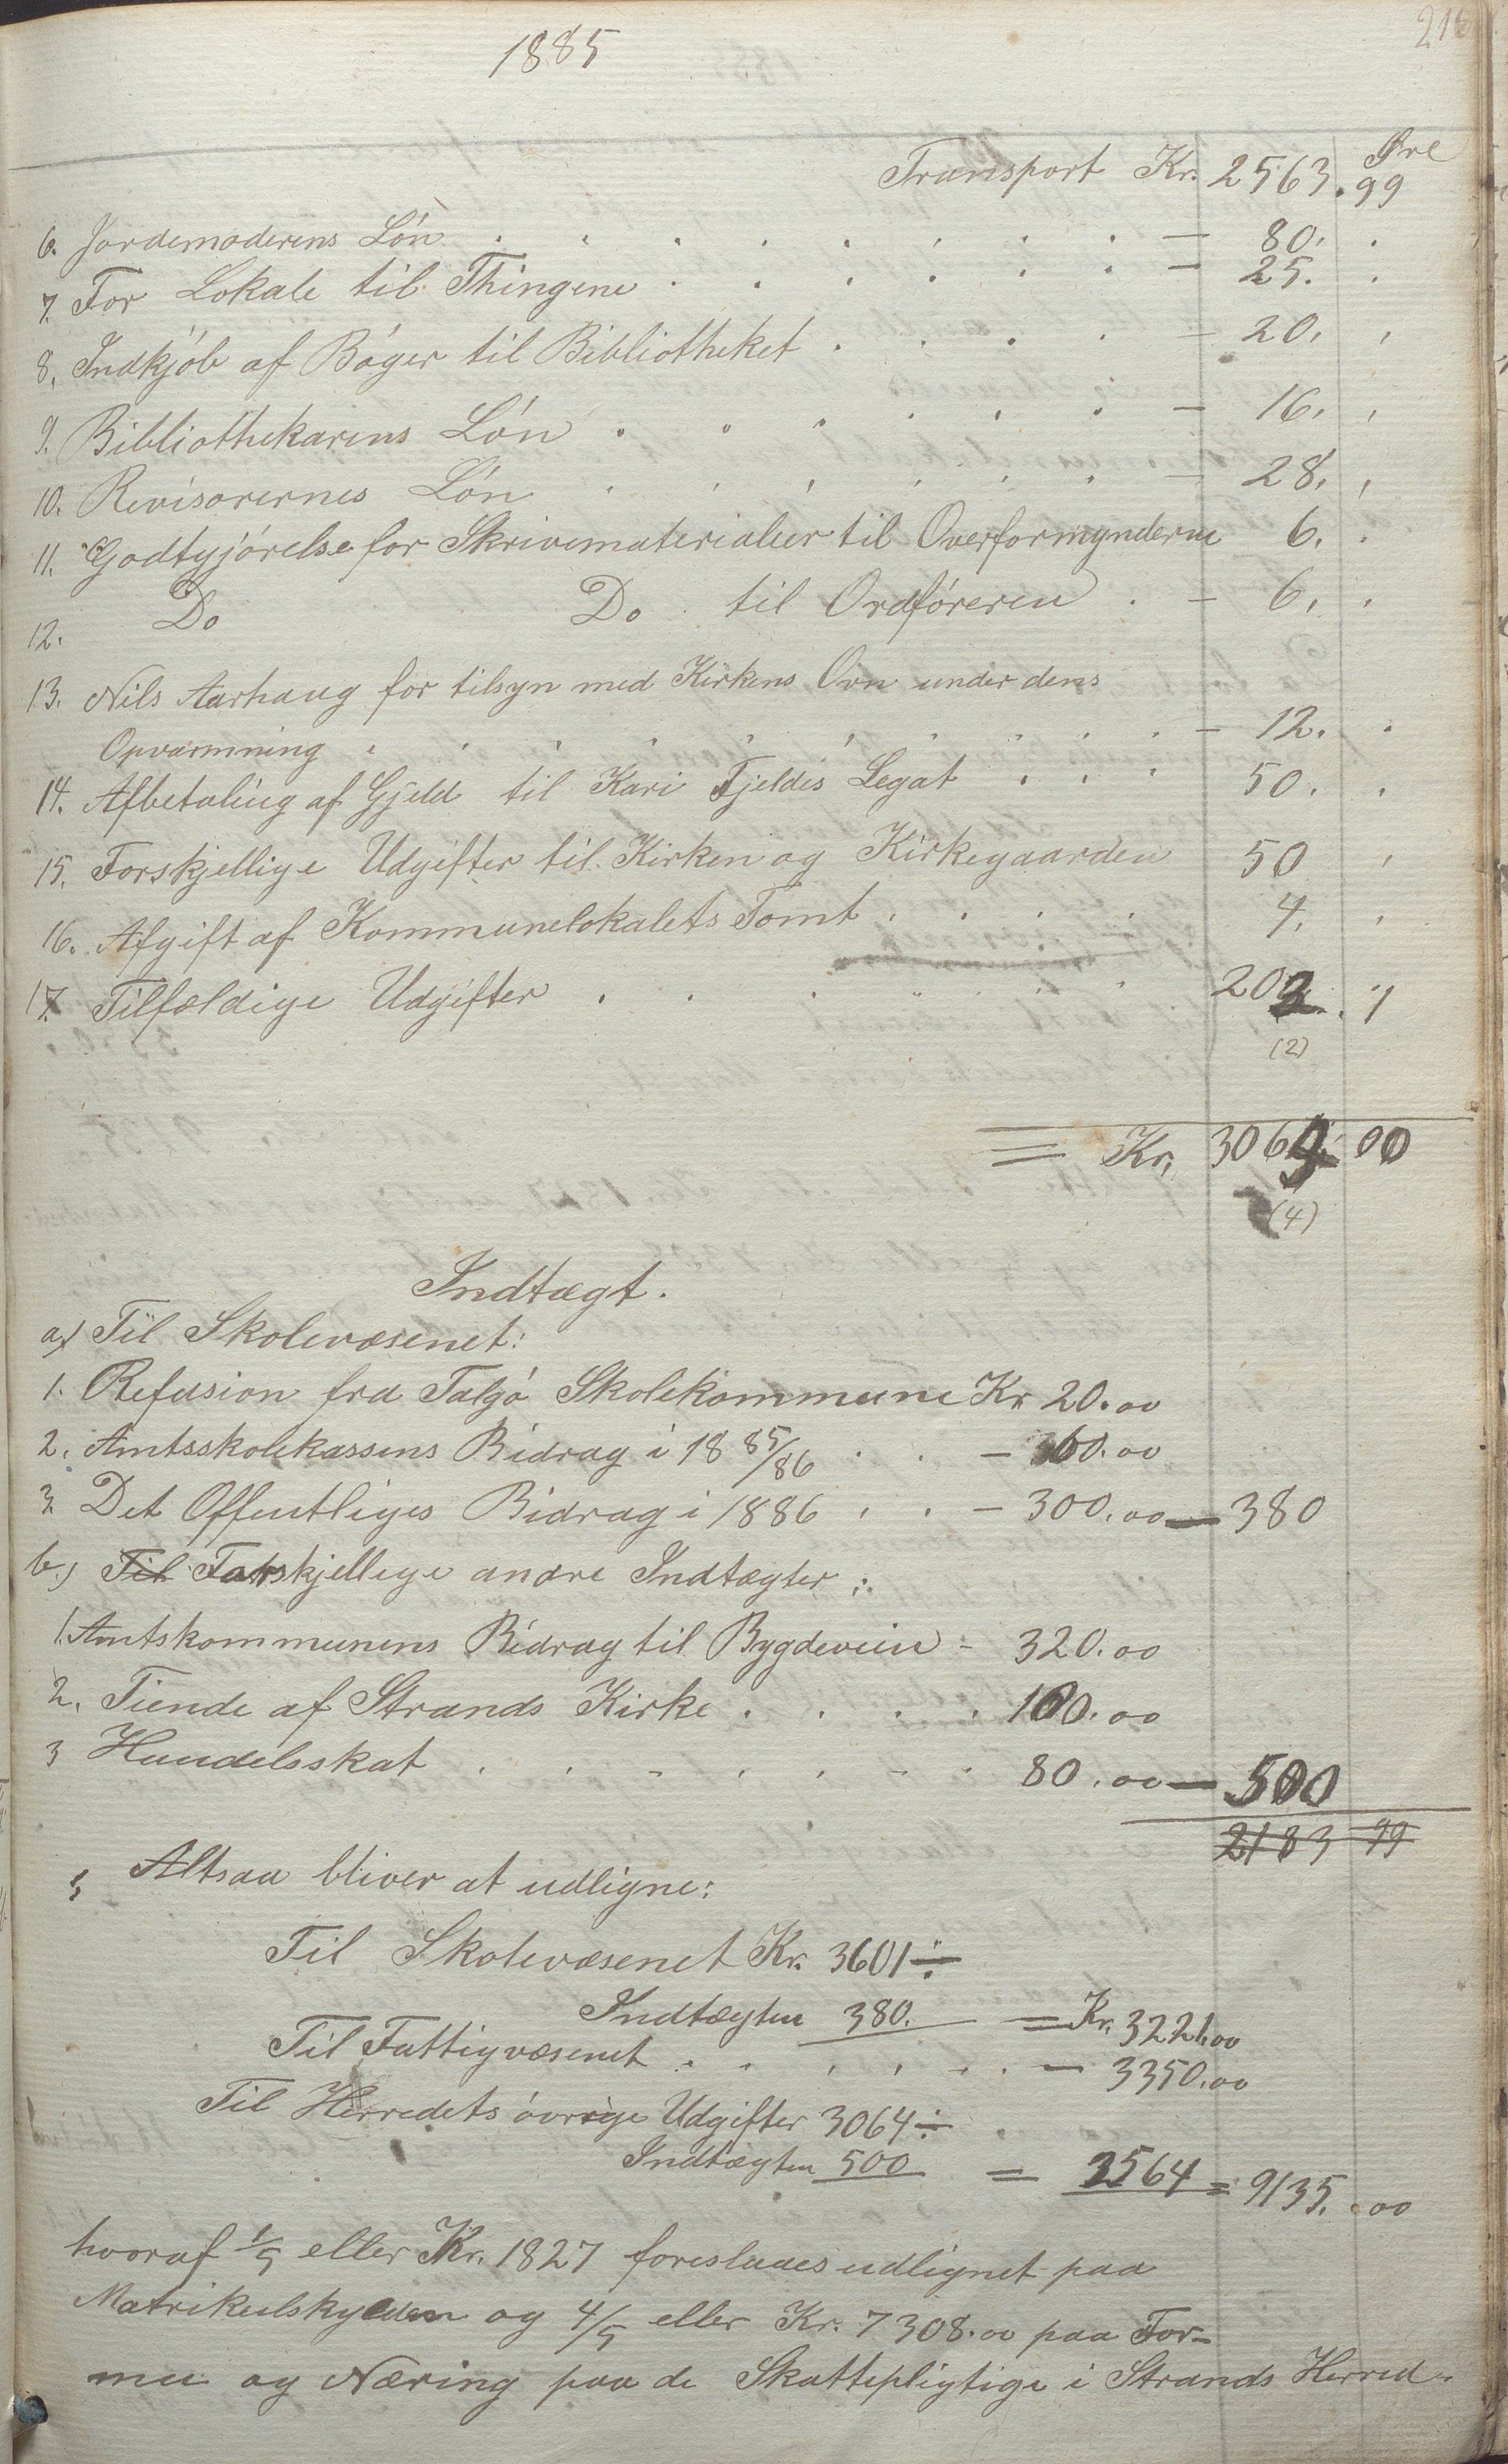 1885
Øre
Transport Kr. 2563.99
6. Jordemoderens Løn . . . . . . . . — 80. .
7. For Lokale til Thingene . . . . . . — 25. .
8. Indkjøb af Bøger til Bibliotheket . . . . — 20. .
9. Bibliothekarens Løn . . . . . . — 16. .
10. Revisorernes Løn . . . . . . — 28. .
11. Godtgjørelse for Skrivematerialier til Overformynderne 6. .
12. Do Do til Ordføreren . — 6. .
13. Nils Aarhaug for tilsyn med Kirkens Ovn under dens
Opvarmning . . . . . . . . . . — 12. .
14. Afbetaling af Gjeld til Kari Fjeldes Legat . . . 50. .
15. Forskjellige Udgifter til Kirken og Kirkegaarden 50 .
16. Afgift af Kommunelokalets Tomt . . . . 4. .
17. Tilfældige Udgifter . . . . . . 202. 1
(2)
= Kr. 3064 00
(4)
Indtægt.
a) Til Skolevæsenet:
1. Refusion fra Talgø Skolekommune Kr 20.00
2. Amtsskolekassens Bidrag i 1885/86 . . — 60.00
3. Det Offentliges Bidrag i 1886 . . — 300.00 — 380
b.) Til Forskjellige andre Indtægter :
1. Amtskommunens Bidrag til Bygdeveien - 320.00
2. Tiende af Strands Kirke . . . . 100.00
3 Handelsskat . . . . . . . 80.00 — 500
2183 99
Altsaa bliver at udligne:
Til Skolevæsenet Kr. 3601 ÷
Indtægten 380. = Kr. 3221.00
Til Fattigvæsenet . . . . . . — 3350.00
Til Herredets øvrige Udgifter 3064 ÷
Indtægten 500 = 2564 = 9135. 00
hvoraf 1/5 eller Kr. 1827 foreslaaes udlignet paa
Matrikulskylden og 4/5 eller Kr. 7308.00 paa For-
mue og Næring paa de Skattepligtige i Strands Herred.